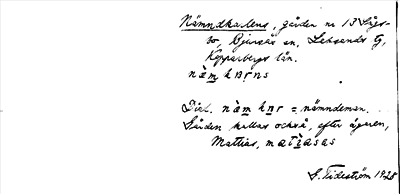 Nämndkarlens, gården nr 13 Såger-
bo, Bjursås sn, Leksands G,
Kopparbergs län.
nä̀m kɴr̥ns
Dial. nä̀m knr = nämndeman.
Gården kallas också, efter ägaren,
Mattias, matìasas
G. Tideström 1928